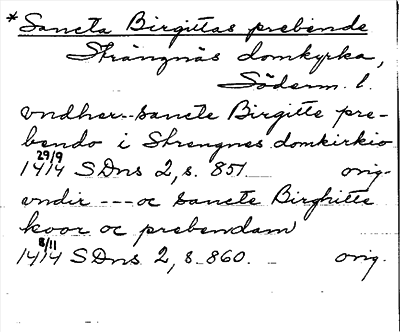 * Sancta Birgittas prebende
Strängnäs domkyrka,
Söderm. l.
vndher--sancte Birgitte pre-
bendo i Strengnes domkirkio
29/9
1414 SDns 2, s. 851. orig.
vndir --- oc sancte Birghitte
koor oc prebendam
8/11
1414 SDns 2, s. 860. orig.